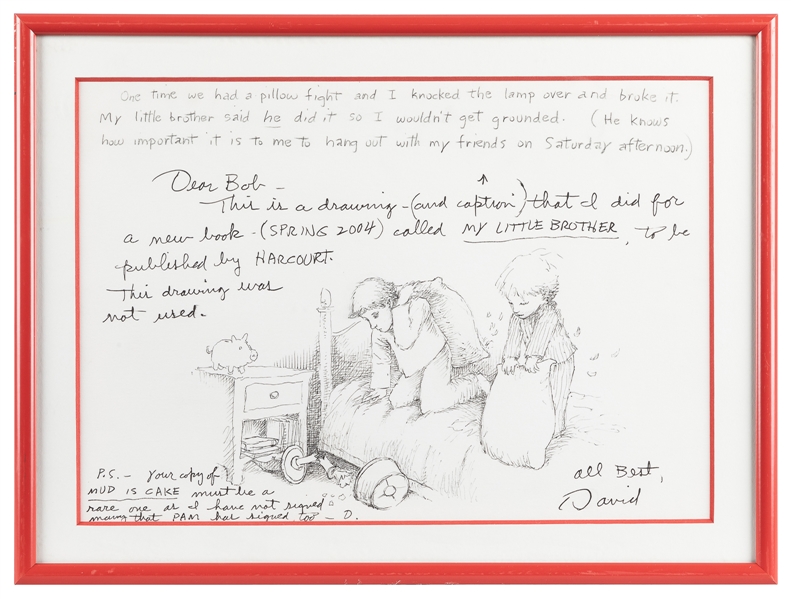 One time we had a pillow fight and I knocked the lamp over and broke it.
My little brother said he did it so I wouldn't get grounded. (He knows
how important it is to me to hang out with my friends on Saturday afternoon.)
Dear Bob –
This is a drawing – (and caption ↑) that I did for
a new book – (SPRING 2004) called MY LITTLE BROTHER, to be
published by HARCOURT.
This drawing was
not used.
P.S. – your copy of
MUD IS CAKE must be a
rare one as I have not signed
many that PAM has signed too – D.
All Best,
David